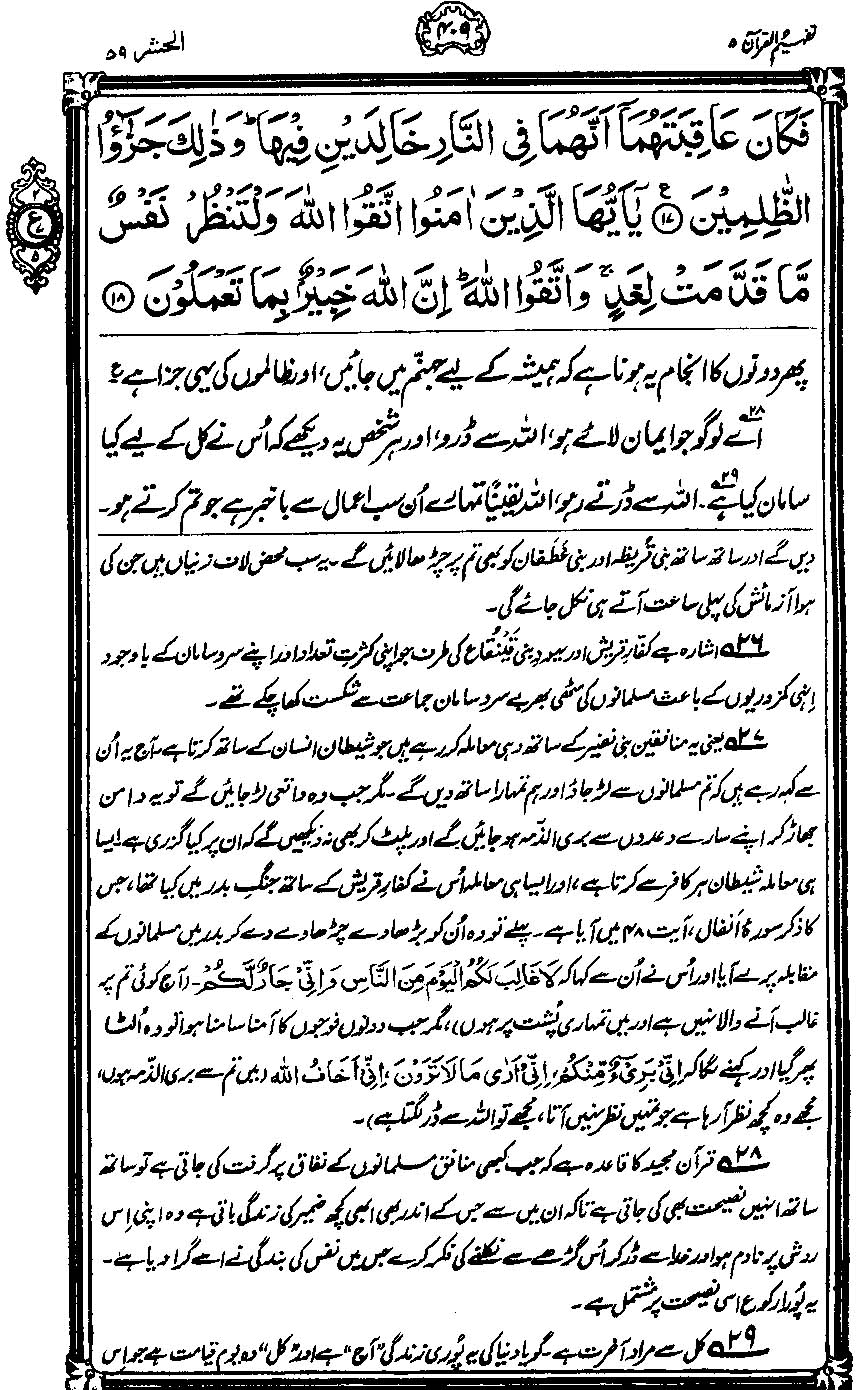 تفہیم القرآن ۵
۴۰۹
الحشر ۵۹
فَكَانَ عَاقِبَتَهُمَآ اَنَّهُمَا فِى النَّارِ خَالِدَيْنِ فِيْهَا ؕ وَذٰلِكَ جَزٰٓؤُا
الظّٰلِمِيْنَ ﴿۱۷﴾ ع يٰٓاَيُّهَا الَّذِيْنَ اٰمَنُوا اتَّقُوا اللّٰهَ وَلْتَنْظُرْ نَفْسٌ
مَّا قَدَّمَتْ لِغَدٍ ۚ وَاتَّقُوا اللّٰهَ ؕ اِنَّ اللّٰهَ خَبِيْرٌۢ بِمَا تَعْمَلُوْنَ ﴿۱۸﴾
۲
ع
۷
۵
پھر دونوں کا انجام یہ ہونا ہے کہ ہمیشہ کے لیے جہنّم میں جائیں، اور ظالموں کی یہی جزا ہے ع
اَے لوگو جو ایمان لائے ہو، اللہ سے ڈرو، اور ہر شخص یہ دیکھے کہ اُس نے کل کے لیے کیا
سامان کیا ہے۔ اللہ سے ڈرتے رہو، اللہ یقیناً تمہارے اُن سب اعمال سے باخبر ہے جو تم کرتے ہو۔
۲۸
۲۹
دیں گے اور ساتھ ساتھ بنی قُریظہ اور بنی غَطَفان کو بھی تم پر چڑھا لائیں گے۔ یہ سب محض لاف زنیاں ہیں جن کی
ہوا آزمائش کی پہلی ساعت آتے ہی نکل جائے گی۔
۲۶ اشارہ ہے کفارِ قریش اور یہود بنی قینُقاع کی طرف جو اپنی کثرتِ تعداد اور اپنے سروسامان کے باوجود
اِنہی کمزوریوں کے باعث مسلمانوں کی مٹھی بھر بے سروسامان جماعت سے شکست کھا چکے تھے۔
۲۷ یعنی یہ منافقین بنی نضیر کے ساتھ وہی معاملہ کر رہے ہیں جو شیطان انسان کے ساتھ کرتا ہے، آج یہ اُن
سے کہہ رہے ہیں کہ تم مسلمانوں سے لڑ جاؤ اور ہم تمہارا ساتھ دیں گے۔ مگر جب وہ واقعی لڑ جائیں گے تو یہ دامن
جھاڑ کر اپنے سارے وعدوں سے بری الذّمہ ہو جائیں گے اور پلٹ کر بھی نہ دیکھیں گے کہ ان پر کیا گزری ہے ایسا
ہی معاملہ شیطان ہر کافر سے کرتا ہے، اور ایسا ہی معاملہ اُس نے کفارِ قریش کے ساتھ جنگِ بدر میں کیا تھا، جس
کا ذکر سورۂ اَنفال، آیت ۴۸ میں آیا ہے۔ پہلے تو وہ اُن کو بڑھاوے چڑھاوے دے کر بدر میں مسلمانوں کے
مقابلہ پر لے آیا اور اُس نے اُن سے کہا کہ لَا غَالِبَ لَكُمُ الْيَوْمَ مِنَ النَّاسِ وَاِنِّیْ جَارٌ لَّكُمْ۔ (آج کوئی تم پر
غالب آنے والا نہیں ہے اور میں تمہاری پُشت پر ہوں)، مگر جب دونوں فوجوں کا آمنا سامنا ہوا تو وہ اُلٹا
پھر گیا اور کہنے لگا کہ اِنِّیْ بَرِیْٓءٌ مِّنْكُمْ، اِنِّیْٓ اَرٰی مَا لَا تَرَوْنَ، اِنِّیْٓ اَخَافُ اللّٰه (میں تم سے بری الذمہ ہوں،
مجھے وہ کچھ نظر آ رہا ہے جو تمہیں نظر نہیں آتا، مجھے تو اللہ سے ڈر لگتا ہے)۔
۲۸ قرآن مجید کا قاعدہ ہے کہ جب کبھی منافق مسلمانوں کے نفاق پر گرفت کی جاتی ہے تو ساتھ
ساتھ انہیں نصیحت بھی کی جاتی ہے تاکہ ان میں سے جس کے اندر بھی ابھی کچھ ضمیر کی زندگی باقی ہے وہ اپنی اِس
روش پر نادم ہو اور خدا سے ڈر کر اُس گڑھے سے نکلنے کی فکر کرے جس میں نفس کی بندگی نے اسے گرا دیا ہے۔
یہ پُورا رکوع اسی نصیحت پر مشتمل ہے۔
۲۹ کل سے مراد آخرت ہے۔ گویا دنیا کی یہ پُوری زندگی "آج" ہے اور "کل" وہ یومِ قیامت ہے جو اِس